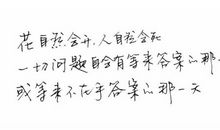 花自然会开，人自然会死
一切问题自会有等来答案的那
或等来不在乎答案的那一天